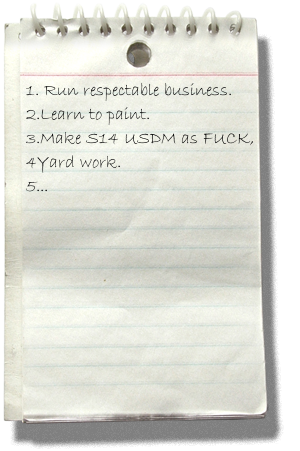 1. Run respectable business.
2.Learn to paint.
3.Make S14 USDM as FUCK,
4Yard work.
5...